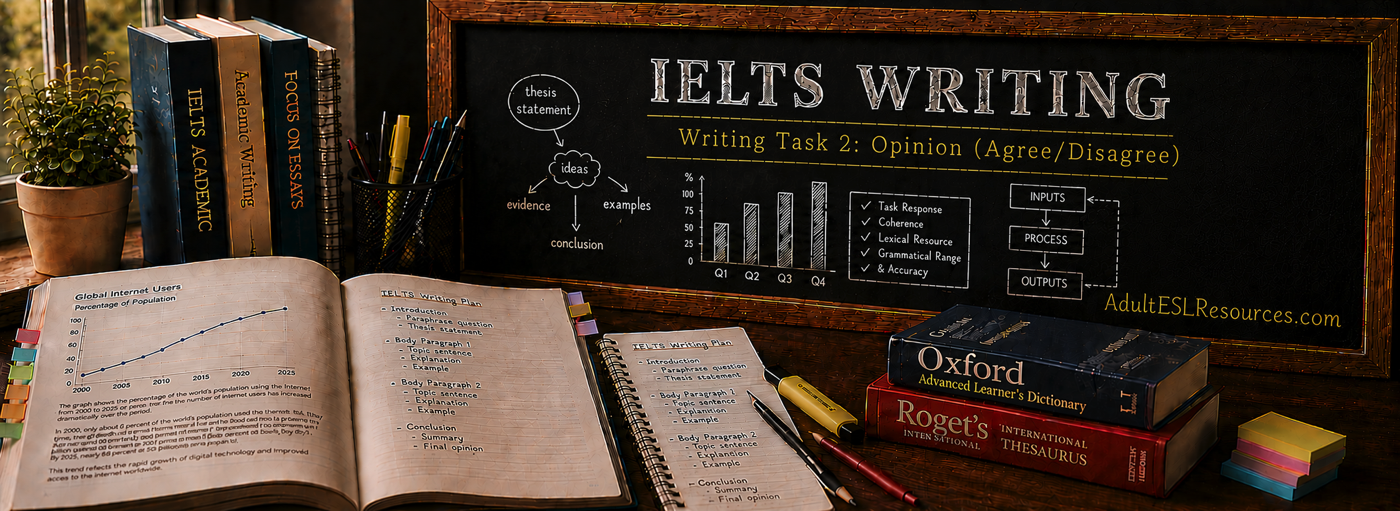 IELTS ACADEMIC
Academic Writing
FOCUS ON ESSAYS
thesis
statement
ideas
evidence
examples
conclusion
IELTS WRITING
Writing Task 2: Opinion (Agree/Disagree)
%
100
75
50
25
0
Q1 Q2 Q3 Q4
✓ Task Response
✓ Coherence
✓ Lexical Resource
✓ Grammatical Range
✓ & Accuracy
INPUTS
PROCESS
OUTPUTS
AdultESLResources.com
Global Internet Users
Percentage of Population
100
80
60
40
20
0
2000 2005 2010 2015 2025
The graph shows the percentage of the world's population using the Internet
from 2000 to 2025 or the number of internet users has increased
dramatically over the period.
In 2000, only about 6 percent of the world's population used the
By 2025, nearly 68 percent
This trend reflects the rapid growth of digital technology and improved
access to the internet worldwide.
IELTS Writing Plan
- Introduction
- Paraphrase question
- Thesis statement
- Body Paragraph 1
- Topic sentence
- Explanation
- Example
- Body Paragraph 2
- Topic sentence
- Explanation
- Example
- Conclusion
- Summary
- Final opinion
IELTS Writing Plan
- Introduction
- Paraphrase question
- Thesis statement
- Body Paragraph 1
- Topic sentence
- Explanation
- Example
- Body Paragraph 2
- Topic sentence
- Explanation
- Example
- Conclusion
- Summary
- Final opinion
Oxford
Advanced Learner's Dictionary
Roget's
INTERNATIONAL
THESAURUS